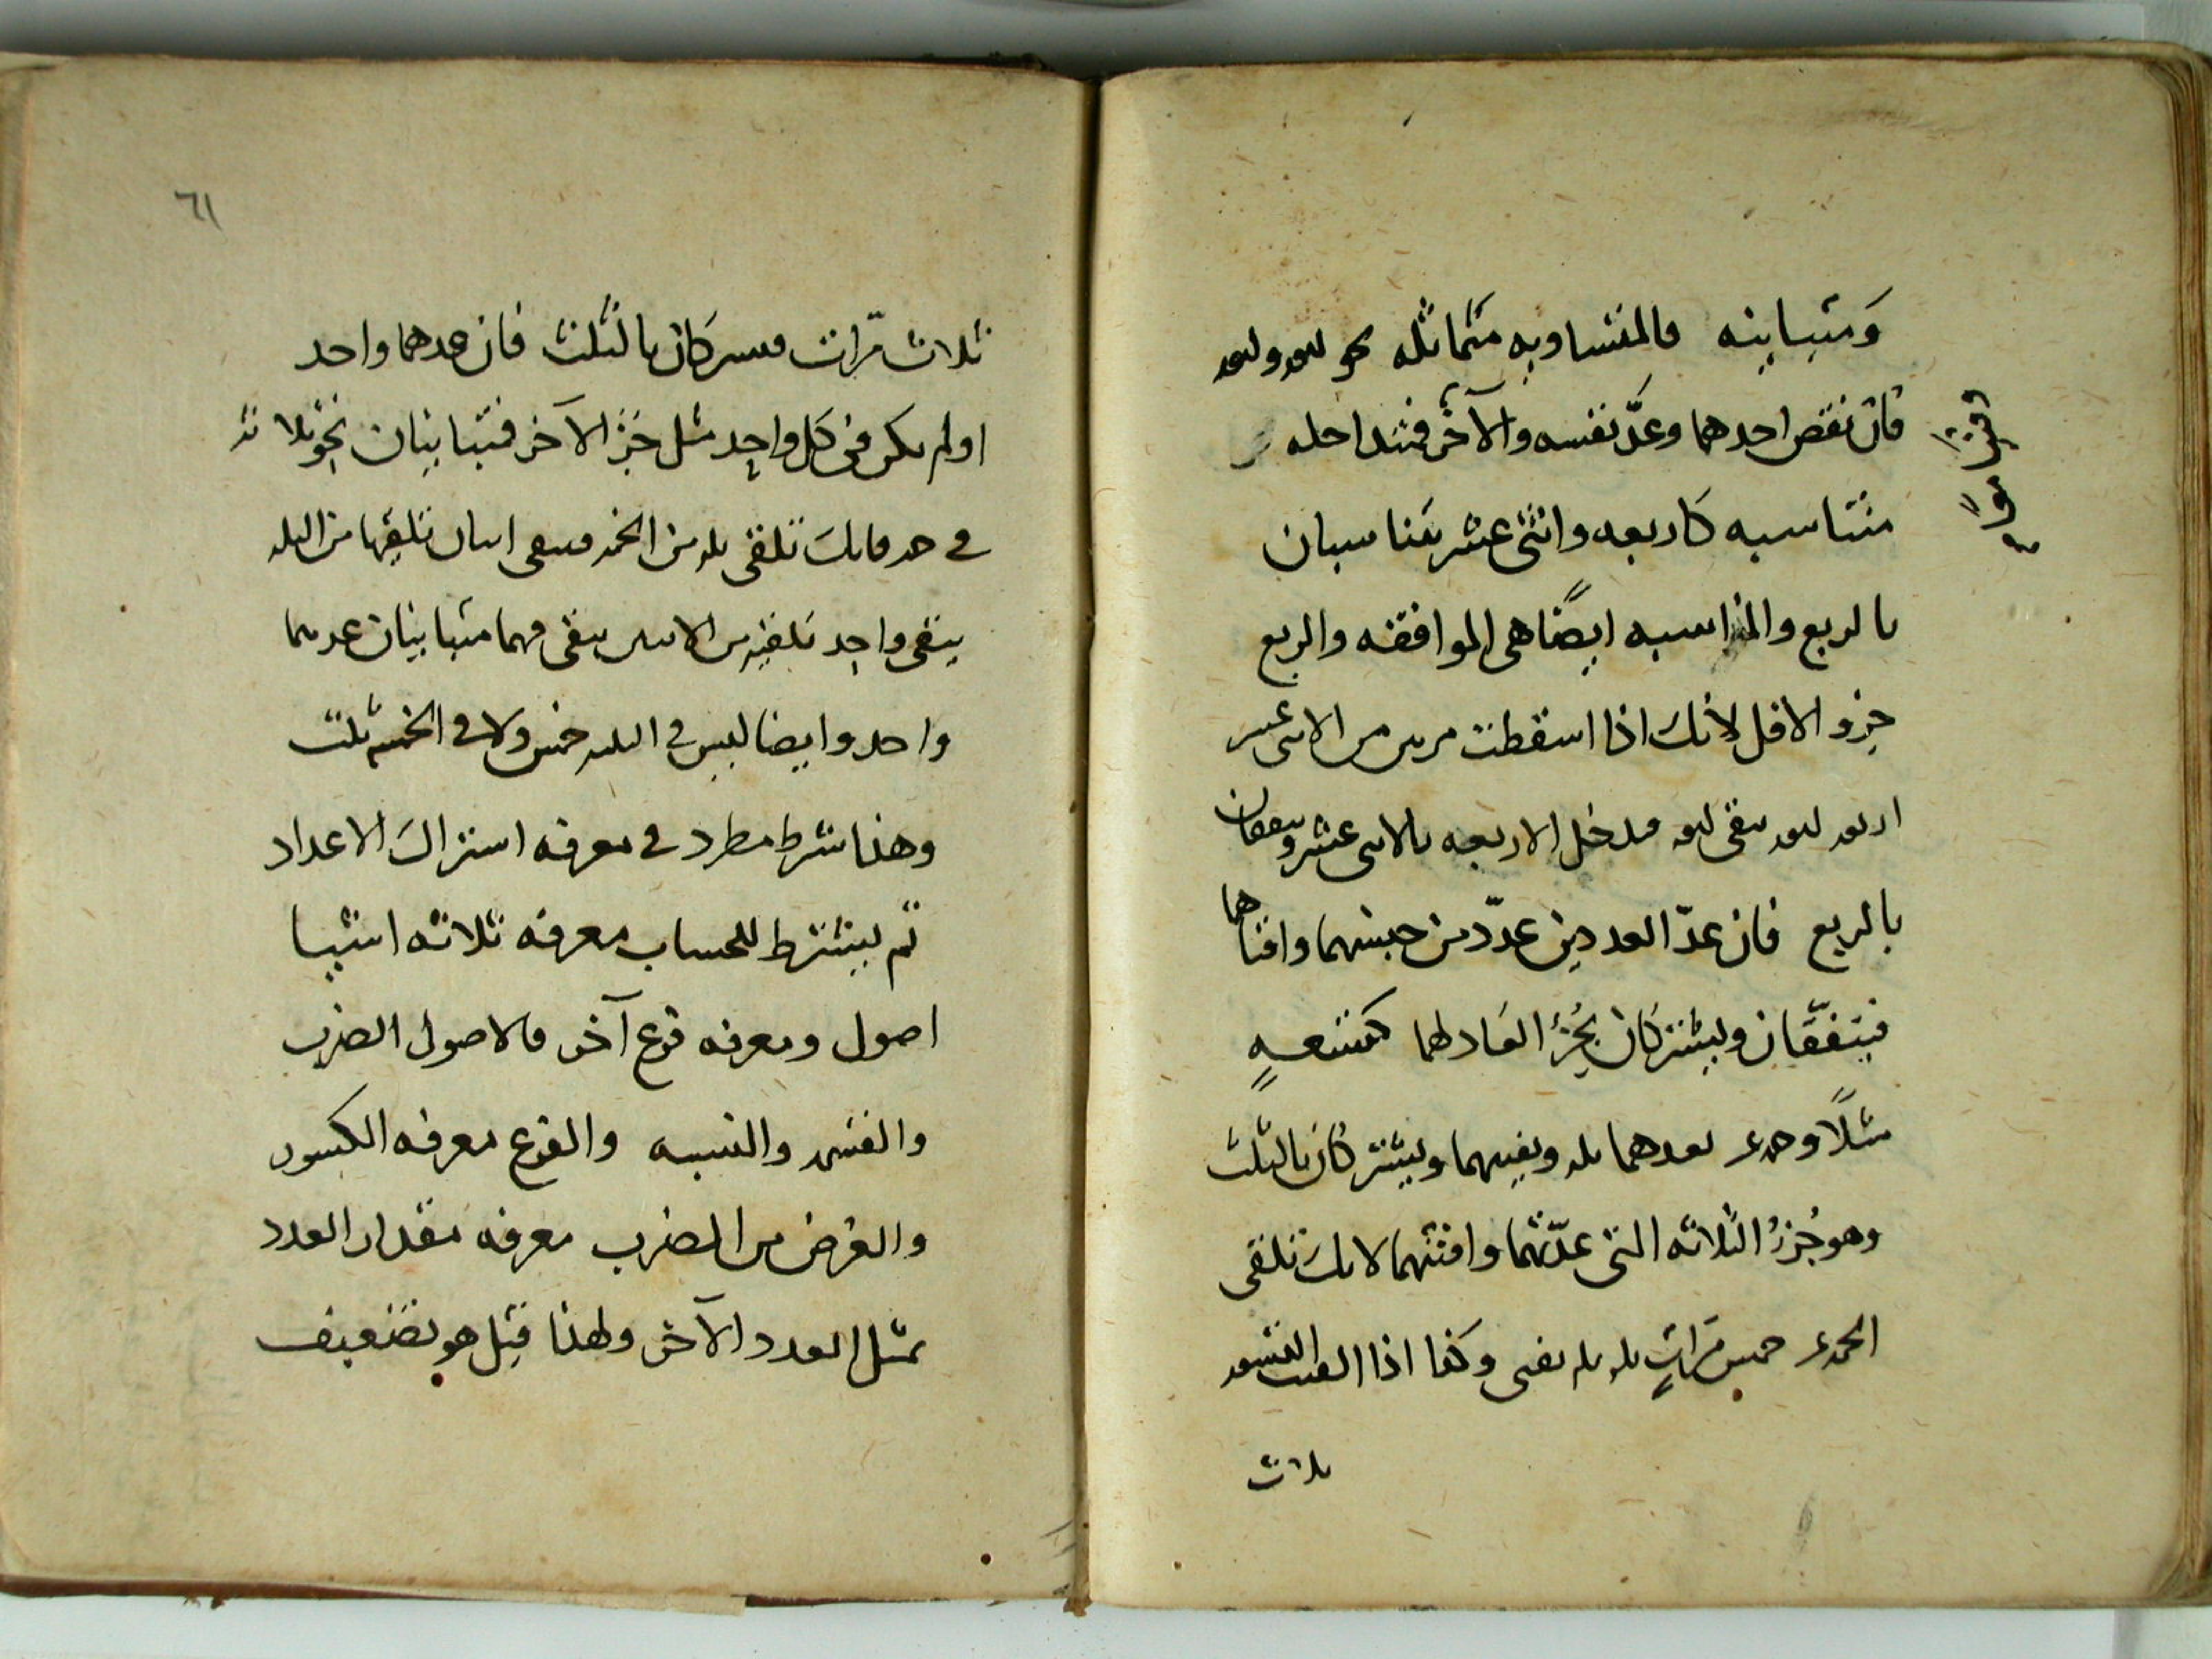 ومتباينه فالمتساويه متماثله نحو اربعه واربعه
فان نقص احدهما وعدّ نفسه والآخر فمتداخله
متناسبه كاربعه واثنى عشر يتناسبان
بالربع والمناسبه ايضًا هى الموافقه والربع
جزو الاقل لانك اذا اسقطت من الاثنى عشر
اربعه اربعه يبقى اربعه فتدخل الاربعه بالاثنى عشر ويتفقان
بالربع فان عدّ العددين عددّ من جنسهما وافناهما
فيتفقّان ويشتركان بجُزءِ العَاد لهما كتسعهٍ
مثلًا وخمسه عشر يعدهما ثلثه ويفنيهما ويشتركان بالثلث
وهو جُزءُ الثلاثه التى عدّتهما وافنتهما لانك تلقى
الخمسه عشر خمس مَراتٍ ثلثه ثلثه يفنى وكذا اذا القيت التسعه
ثلاث
٦١
ثلاث مّرات فيشتركان بالثلث فان عدهما واحد
او لم يكن فى كل واحدٍ مثل جزء الآخر فمتباينان نحو ثلاثه
فى خمسه فانك تلقى ثلثه من الخمسه فيبقى اثنان تلقيها من الثلثه
يبقى واحد تلقيه من الاثنين يبقى فهما متباينان عدهما
واحد وايضا ليس فى الثلثه خمس ولا فى الخمسه ثلث
وهذا شرط مطرد فى معرفه اشتراك الاعداد
ثم يشترط للحساب معرفه ثلاثه اشيا
اصول ومعرفه فرع آخر فالاصول الضرب
والقسمه والنسبه والفرع معرفه الكسور
والغرض من الضرب معرفه مقدار العدد
بمثل العدد الآخر ولهذا قيل هو تضعيف